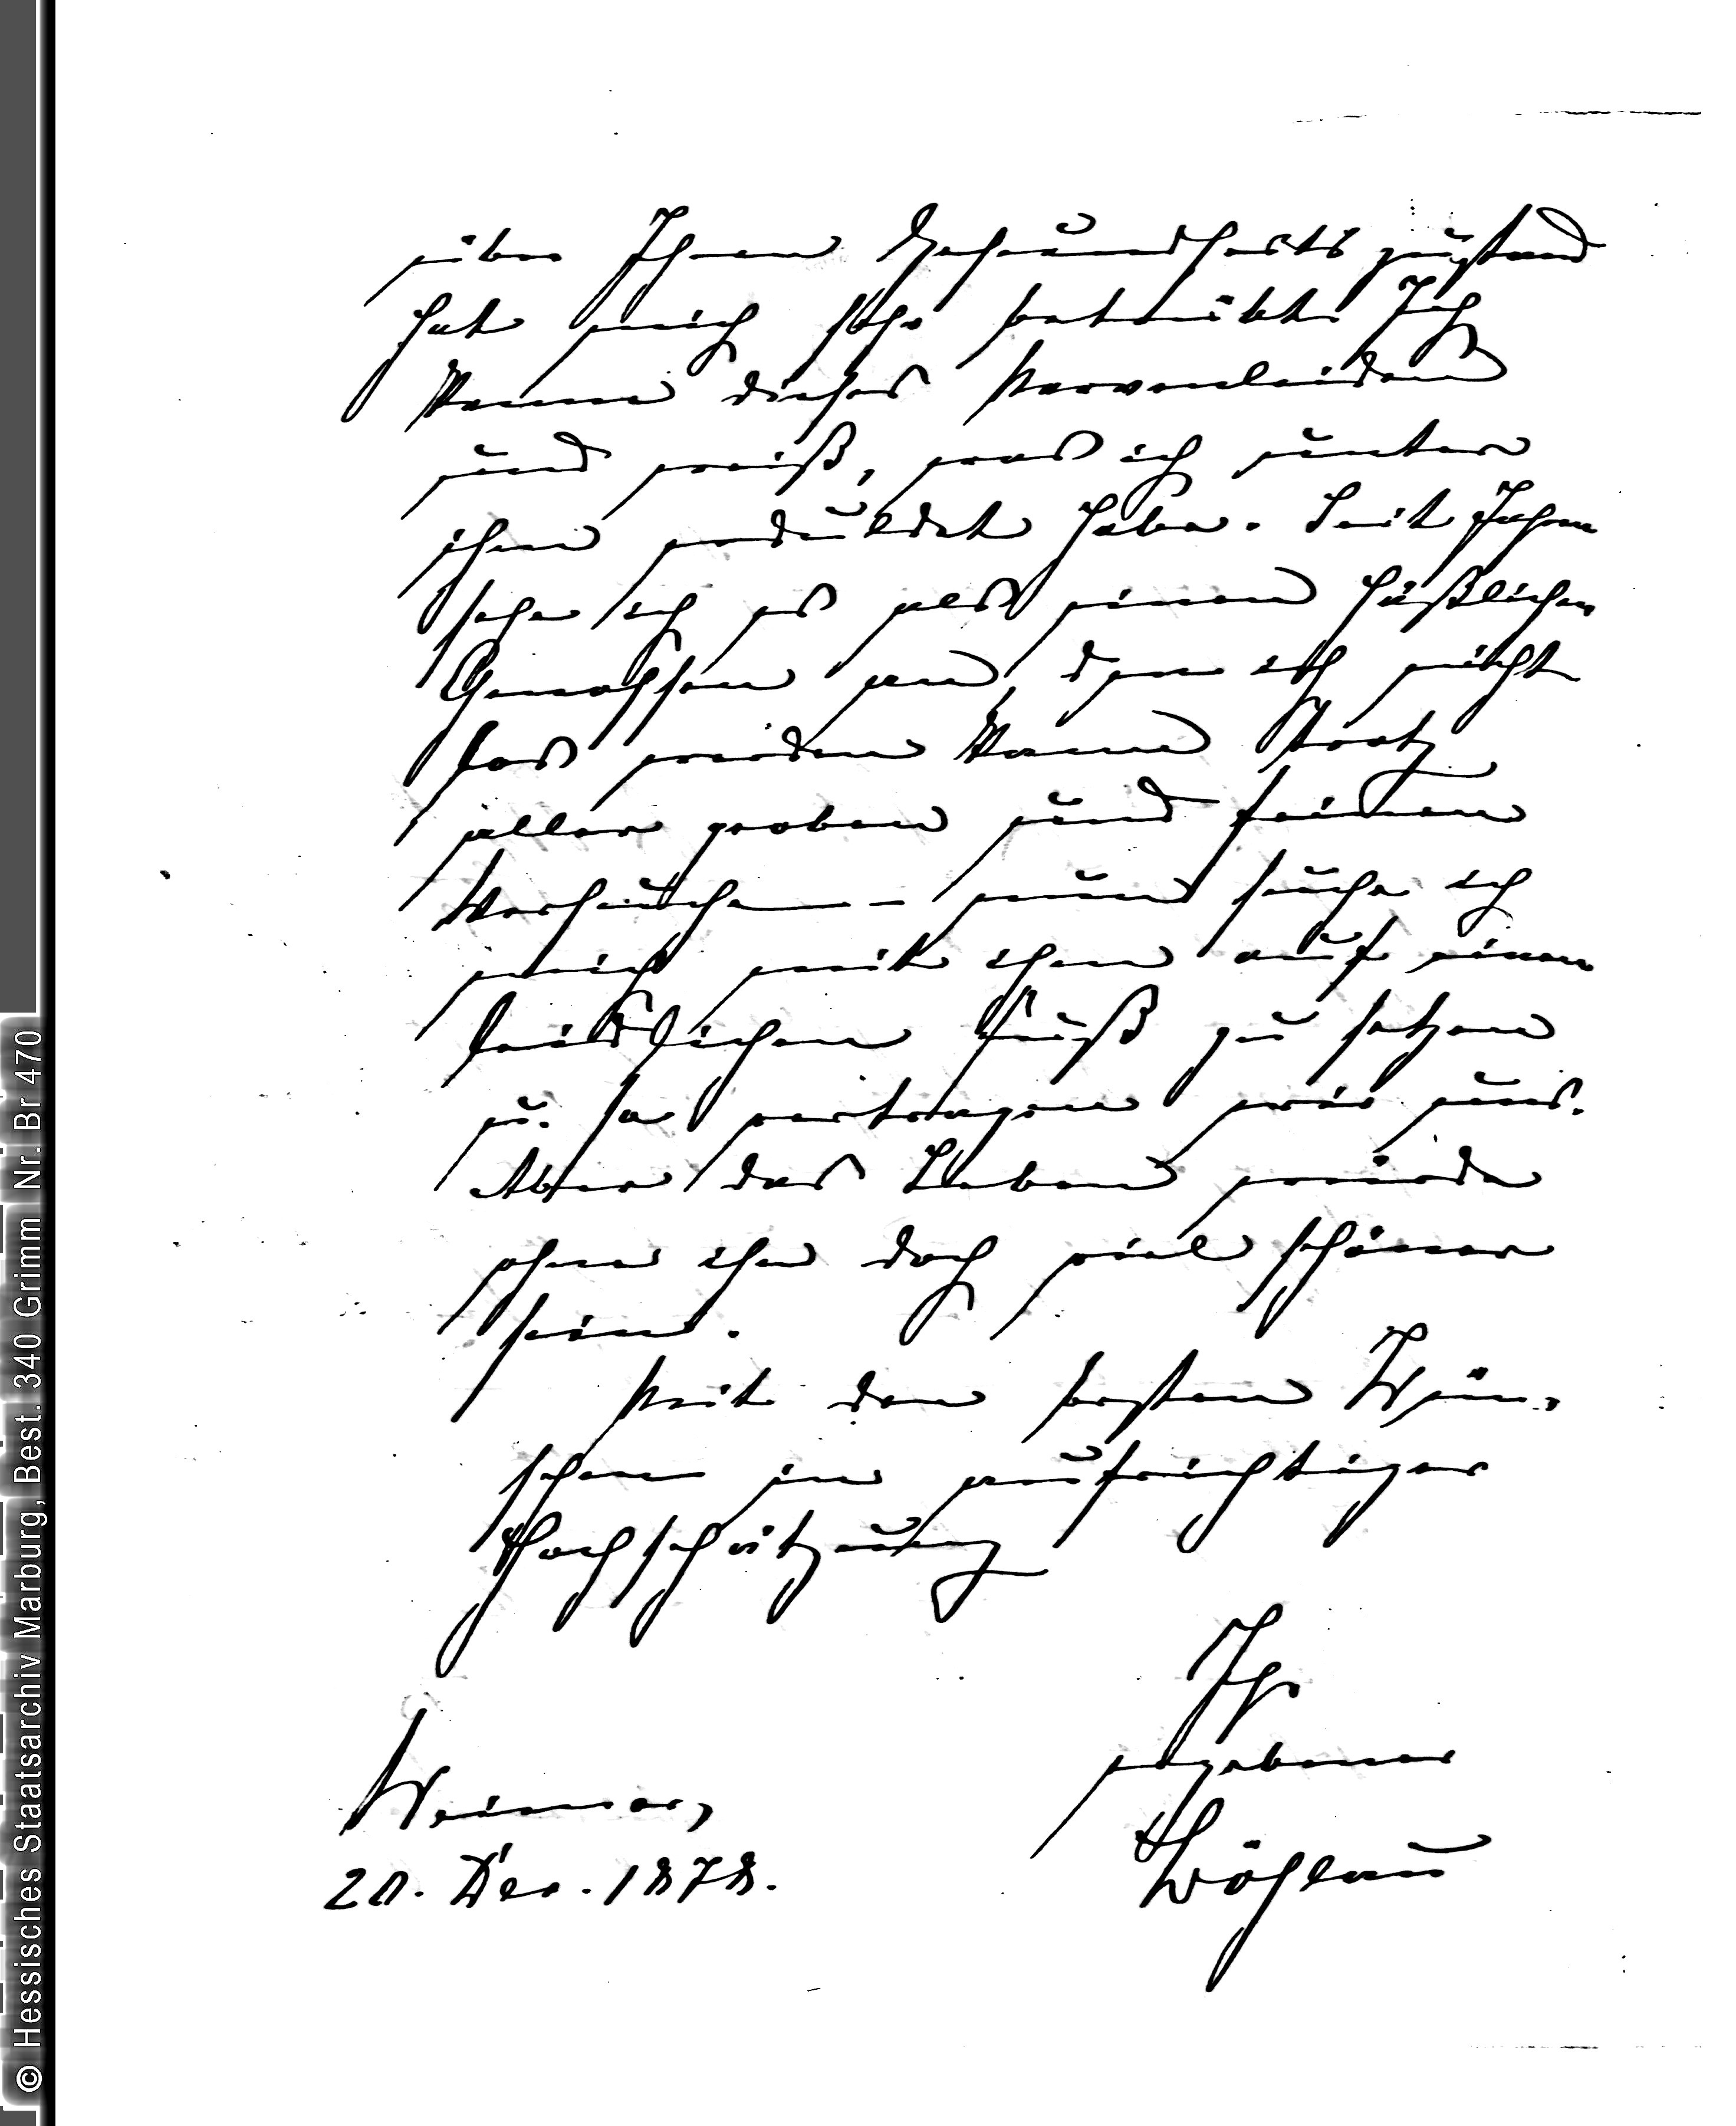 über Ihren Gesundheitszustand
hat mich sehr betrübt. Ich
kenne dieses Nervenleiden
und weiß, was ich unter
ihm erduldet habe. Seit Jahren
sehe ich es als einen häßlichen
Genossen an, den ich nicht
los werden kann trotz
aller groben und feinen
Versuche — nun suche ich
mich mit ihm auf einen
leidlichen Fuß zu setzen
u. so vertragen wir uns.
Aber das Leben würde
ohne ihn doch viel schöner
sein.
Mit den besten Wün-
schen in aufrichtiger
Hochschätzung
Ihr
ergebener
Böhlau
Weimar,
20. Dec. 1878.
© Hessisches Staatsarchiv Marburg, Best. 340 Grimm Nr. Br 470